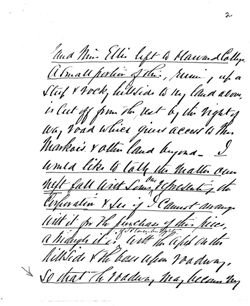 2
land Mrs. Ellis left to Harvard College
A small portion of this, running up a
steep & rocky hillside to my land above,
is cut off from the rest by the right of
way road which gives access to Mrs
& other land beyond. I
would like to talk the matter over
next fall with some representative of the
Corporation & see if I cannot arrange
with it for the purchase of this piece,
the
hillside & the base upon roadway.
so that the roadway may become my